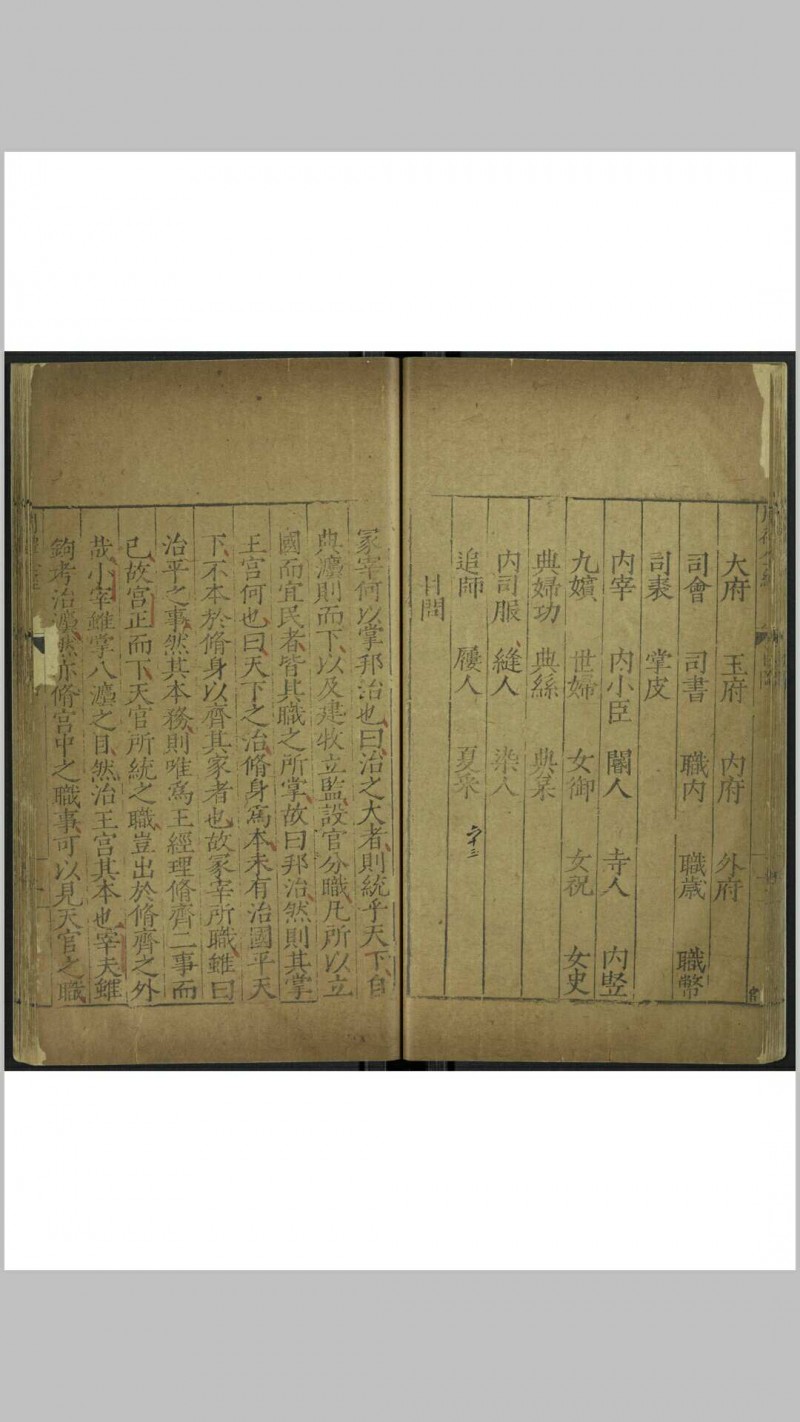 大府 玉府 内府 外府
司會 司書 職内 職歲 職幣
司裘 掌皮
内宰 内小臣 閽人 寺人 内竪
九嬪 世婦 女御 女祝 女史
典婦功 典絲 典枲
内司服 縫人 染人
追師 屨人 夏采
冢宰何以掌邦治也曰治之大者則統乎天下自
典灋則而下以及建牧立監設官分職凡所以立
國而宜民者皆其職之所掌故曰邦治然則其掌
王宫何也曰天下之治脩身爲本未有治國平天
下不本於脩身以齊其家者也故冢宰所職雖曰
治平之事然其本務則唯爲王經理脩齊二事而
已故宫正而下天官所統之職豈出於脩齊之外
哉小宰雖掌八灋之目然治王宫其本也宰夫雖
鉤考治灋然亦脩宫中之職事可以見天官之職